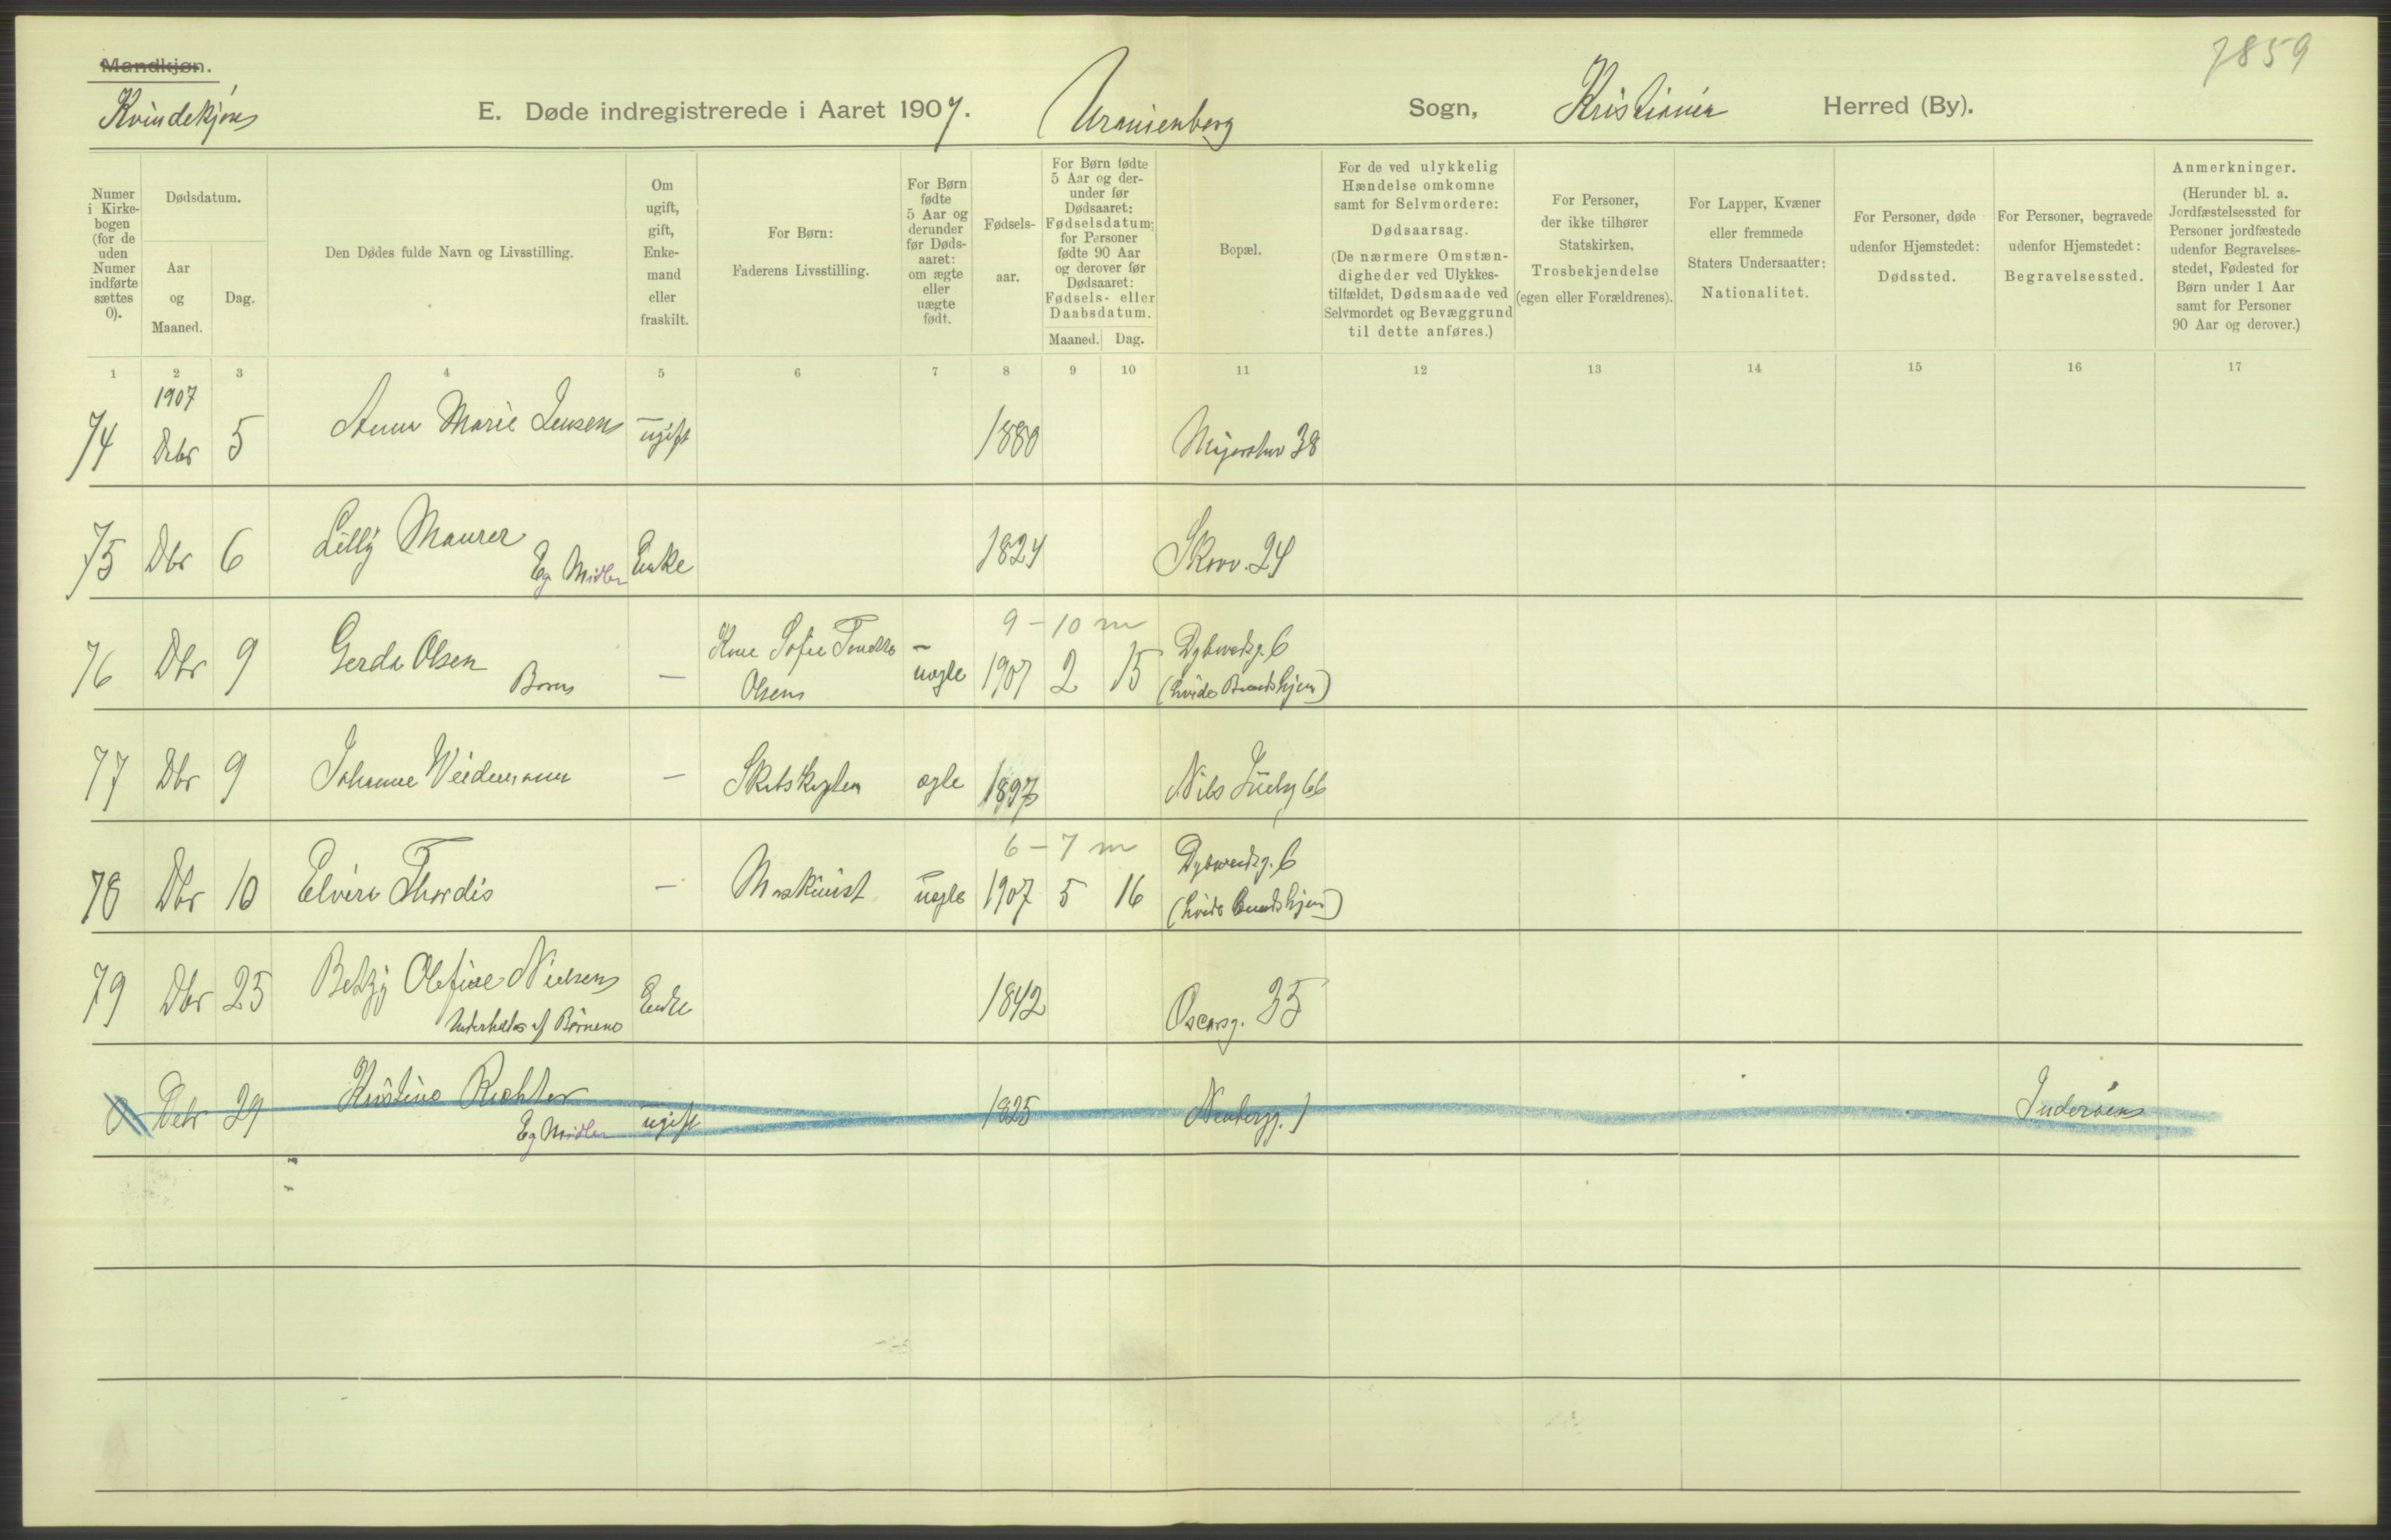 7859
Mandkjøn.
Kvindekjøn
E. Døde indregistrerede i Aaret 1907. Uranienborg Sogn, Kristiania Herred (By).
Numer i Kirke-bogen (for de uden Numer indførte sættes 0).
Dødsdatum.
Aar og Maaned.
Dag.
Den Dødes fulde Navn og Livsstilling.
Om ugift, gift, Enke-mand eller fraskilt.
For Børn: Faderens Livsstilling.
For Børn fødte 5 Aar og derunder før Døds-aaret: om ægte eller uægte født.
Fødsels-aar.
For Børn fødte 5 Aar og der-under før Dødsaaret: Fødselsdatum; for Personer fødte 90 Aar og derover før Dødsaaret: Fødsels- eller Daabsdatum.
Maaned. Dag.
Bopæl.
For de ved ulykkelig Hændelse omkomne samt for Selvmordere: Dødsaarsag. (De nærmere Omstæn-digheder ved Ulykkes-tilfældet, Dødsmaade ved Selvmordet og Bevæggrund til dette anføres.)
For Personer, der ikke tilhører Statskirken, Trosbekjendelse (egen eller Forældrenes).
For Lapper, Kvæner eller fremmede Staters Undersaatter: Nationalitet.
For Personer, døde udenfor Hjemstedet: Dødssted.
For Personer, begravede udenfor Hjemstedet: Begravelsessted.
Anmerkninger. (Herunder bl. a. Jordfæstelsessted for Personer jordfæstede udenfor Begravelses-stedet, Fødested for Børn under 1 Aar samt for Personer 90 Aar og derover.)
1 2 3 4 5 6 7 8 9 10 11 12 13 14 15 16 17
1907
74 Debr 5 Anna Marie Jensen ugift 1880 38
75 Dbr 6 Lilly Maurer Enke 1824 Skovv. 24
Eg Midler
9-10 m
76 Dbr 9 Gerda Olsen — Sofie uægte 1907 2 15 Dybwadsg. 6
Barn Olsen
77 Dbr 9 Johanne Weidemann — ægte 1897 Nils Juelsg 66
6-7 m
78 Dbr 10 Elvira Thordis — Maskinist uægte 1907 5 16 Dybwadsg. 6
79 Dbr 25 Betzy Olefine Nielsen Enke 1842 Oscarsg. 35
Underholdes af Børnene
0 Debr 29 Kristine Richter ugift 1825 Inderøen
Eg Midler